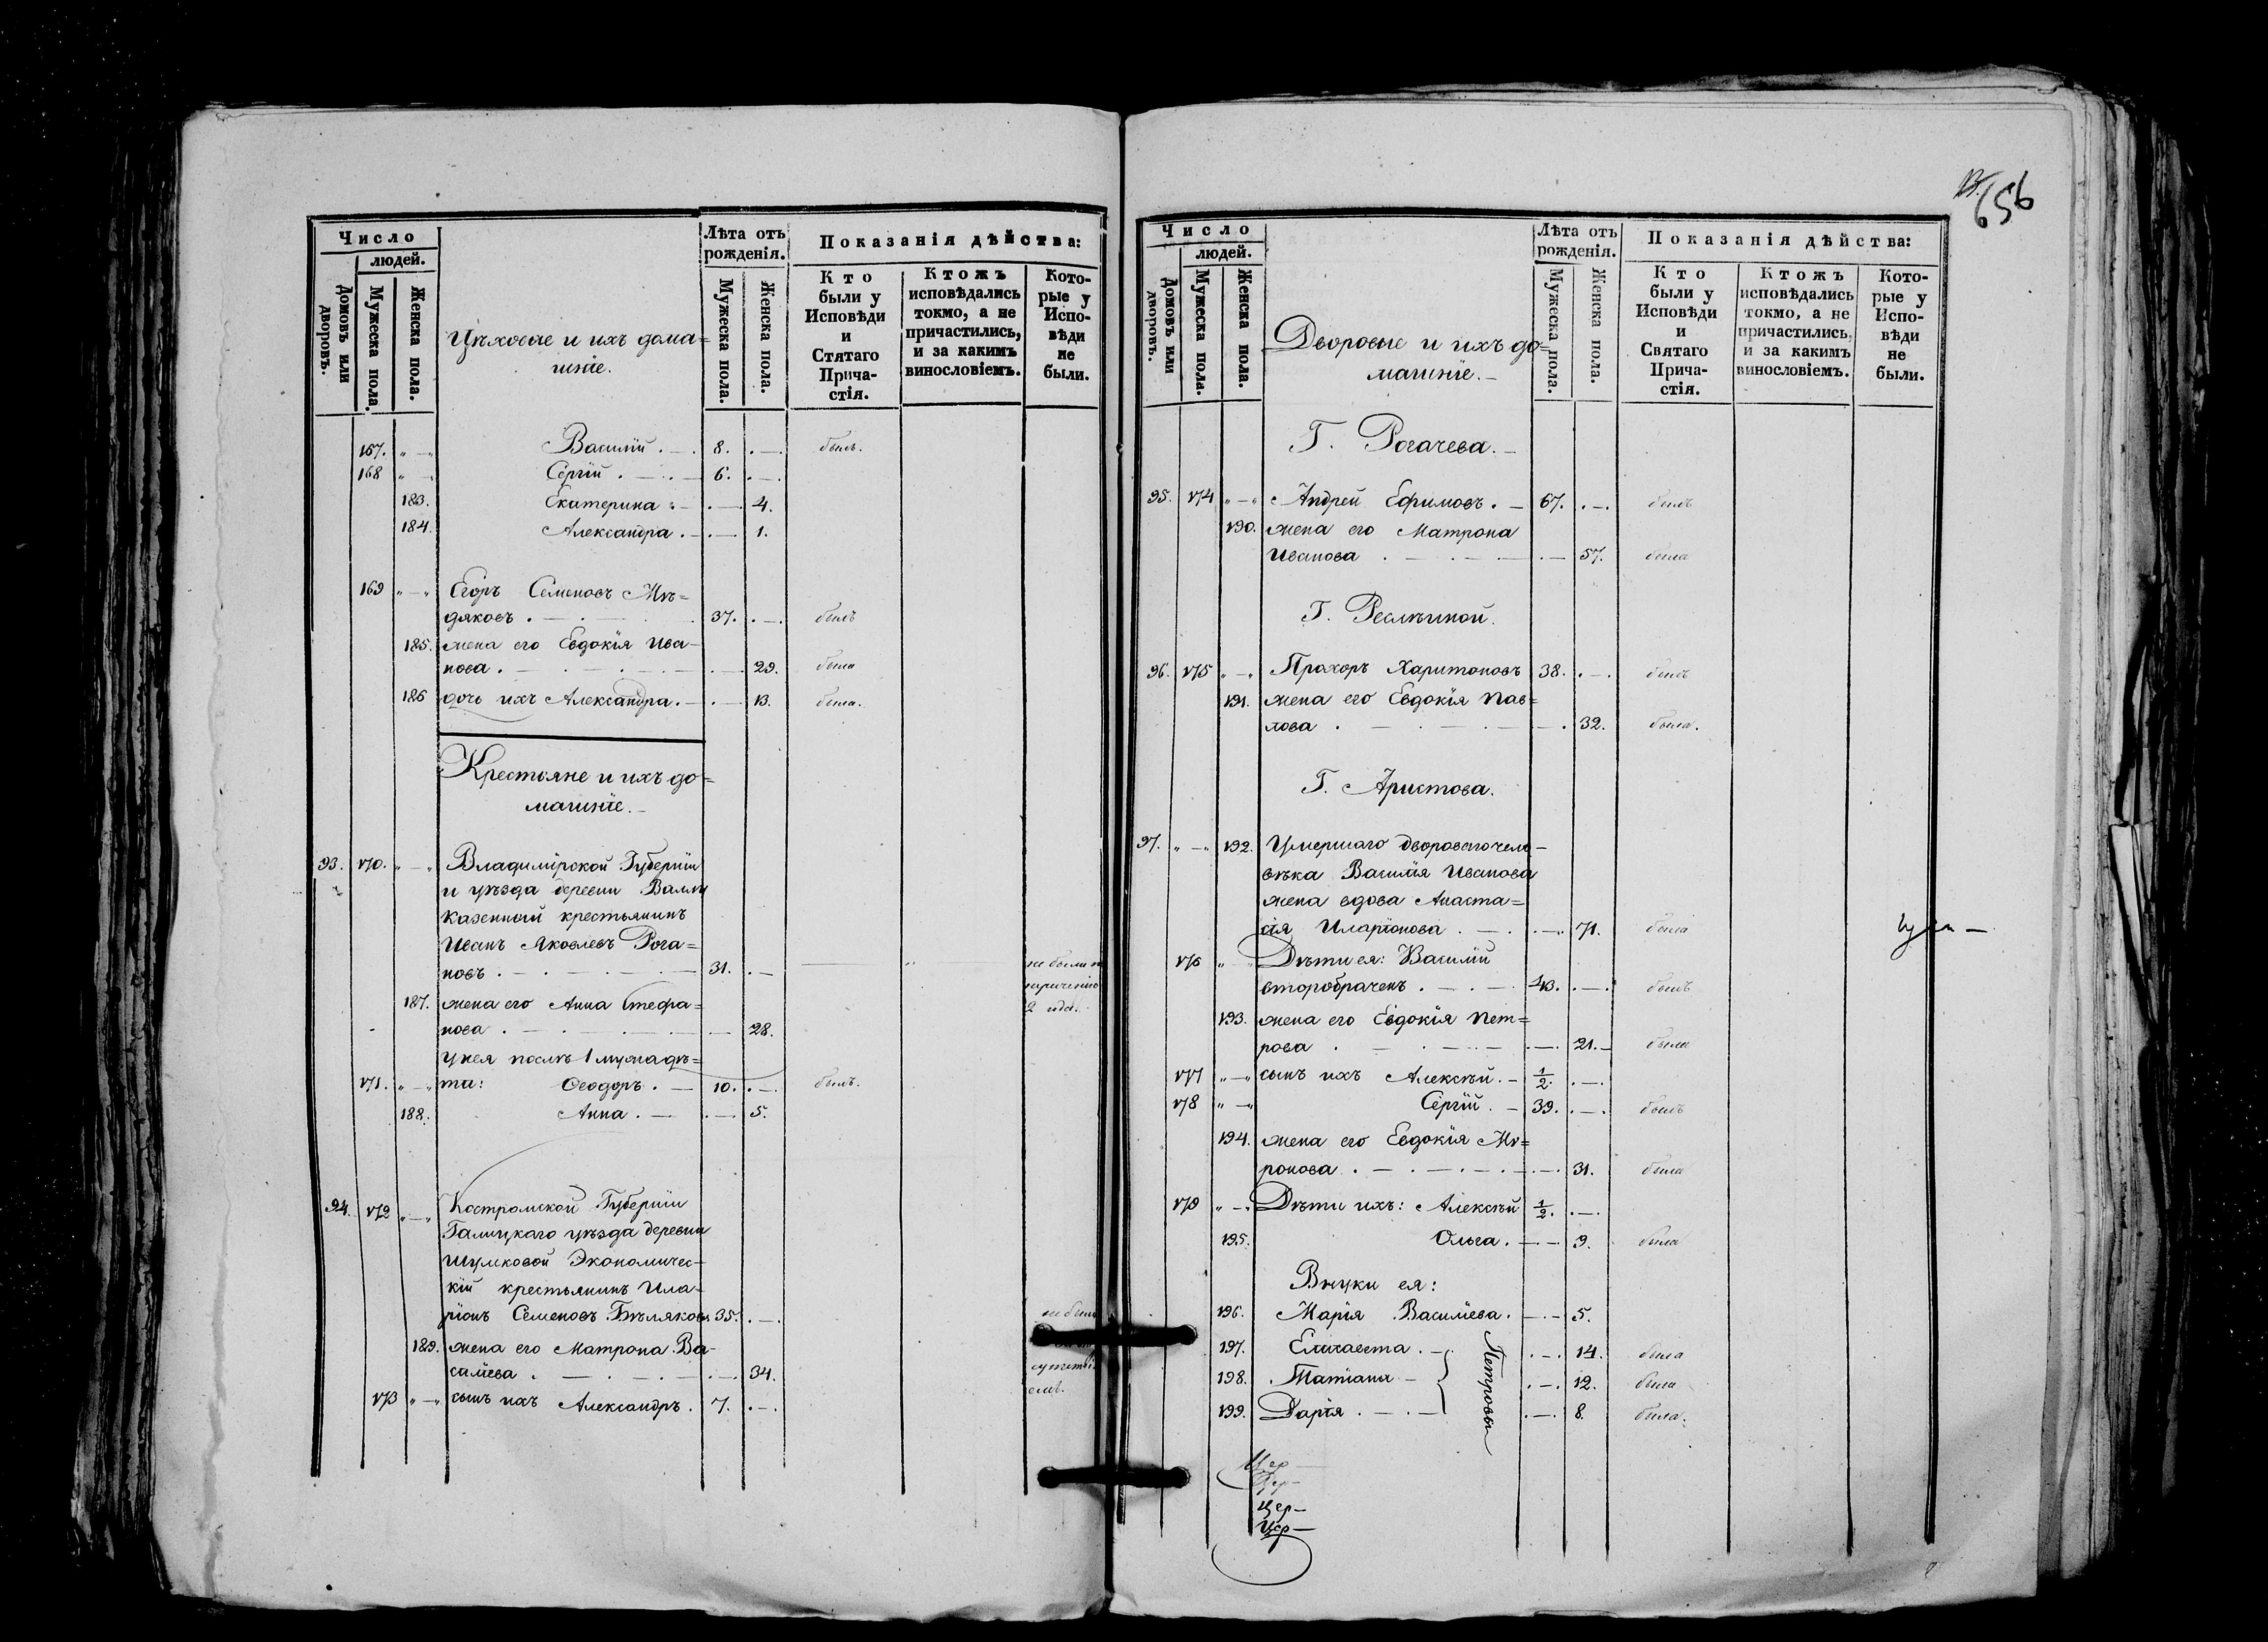 Число
людей.
Домовъ или дворовъ.
Мужеска пола.
Женска пола.
Цѣховые и ихъ дома=
шніе.
Лѣта отъ
рожденія.
Мужеска пола.
Женска пола.
Показанія дѣйства:
Кто
были у
Исповѣди
и
Стятаго
Прича-
стія.
Ктожъ
исповѣдались
токмо, а не
причастились,
и за какимъ
винословіемъ.
Кото-
рые у
Испо-
вѣди
не
были.
167. „ — „ Василій . — . 8. . — . былъ.
168 „ — „ Сергій . — . — 6. . — .
183. Екатерина . — . — 4.
184. Александра . — . — 1.
169 „ — „ Егоръ Семеновъ Мѣ=
дяковъ . — . — . 37. . — . былъ
185. жена его Евдокія Ива-
нова . — . — . — . — 29. была
186 дочь ихъ Александра . — . — 13. была.
Крестьяне и ихъ до=
машніе. —
93. 170. „ — „ Владимірской Губерніи
и уѣзда деревни
Казенный крестьянинъ
Иванъ Яковлевъ Рога=
новъ . — . — . — 31. . — не были
187. жена его Анна Стефа=
нова . — . — . — 28. 2
у нея послѣ 1 мужа дѣ=
171. „ — „ ти: Ѳеодоръ . — 10. . — . былъ.
188. Анна . — . — 5.
94. 172 „ — „ Костромской Губерніи
Галицкаго уѣзда деревни
Шумковой Экономичес-
кій крестьянинъ Ила-
ріонъ Семеновъ Бѣляковъ 35. . — . не были
189. жена его Матрона Ва-
силіева . — . — . — 34.
173 „ — „ сынъ ихъ Александръ . 7. . — .
656
Число
людей.
Домовъ или дворовъ.
Мужеска пола.
Женска пола.
Дворовые и ихъ до=
машніе. —
Лѣта отъ
рожденія.
Мужеска пола.
Женска пола.
Показанія дѣйства:
Кто
были у
Исповѣди
и
Святаго
Прича-
стія.
Ктожъ
исповѣдались
токмо, а не
причастились,
и за какимъ
винословіемъ.
Кото-
рые у
Испо-
вѣди
не
были.
Г. Рогачева. —
95. 174 „ — „ Андрей Ефимовъ . — 67. . — . былъ
190. жена его Матрона
Иванова . — . — . — 57. была
Г.
96. 175 „ — „ Прохоръ Харитоновъ 38. . — . былъ
191. жена его Евдокія Пав=
лова . — . — . — . 32. была.
Г. Аристова.
97. „ — „ 192. Умершаго двороваго чело-
вѣка Василія Иванова
жена вдова Анаста=
сія Иларіонова . — . . — . 71. была
176 „ — Дѣти ея: Василій
второбраченъ . — . — 43. . — . былъ
193. жена его Евдокія Пет=
рова . — . — . — 21. — была
177 „ — „ сынъ ихъ Алексѣй. — 1/2. . — .
178 „ — „ Сергій . — 39. . — . былъ
194. жена его Евдокія Ми=
ронова . — . — . — . — 31. была
179 „ — „ Дѣти ихъ: Алексѣй 1/2. . — .
195. Ольга . — — 9. была
Внуки ея:
196. Марія Василіева . — . — 5.
197. Елисавета . — . . — . 14. была
198. Татіана — . — . 12. была
199. Дарія . — . — . — . 8. была.
Петровы
Цер—
Цер—
Цер—
Цер—